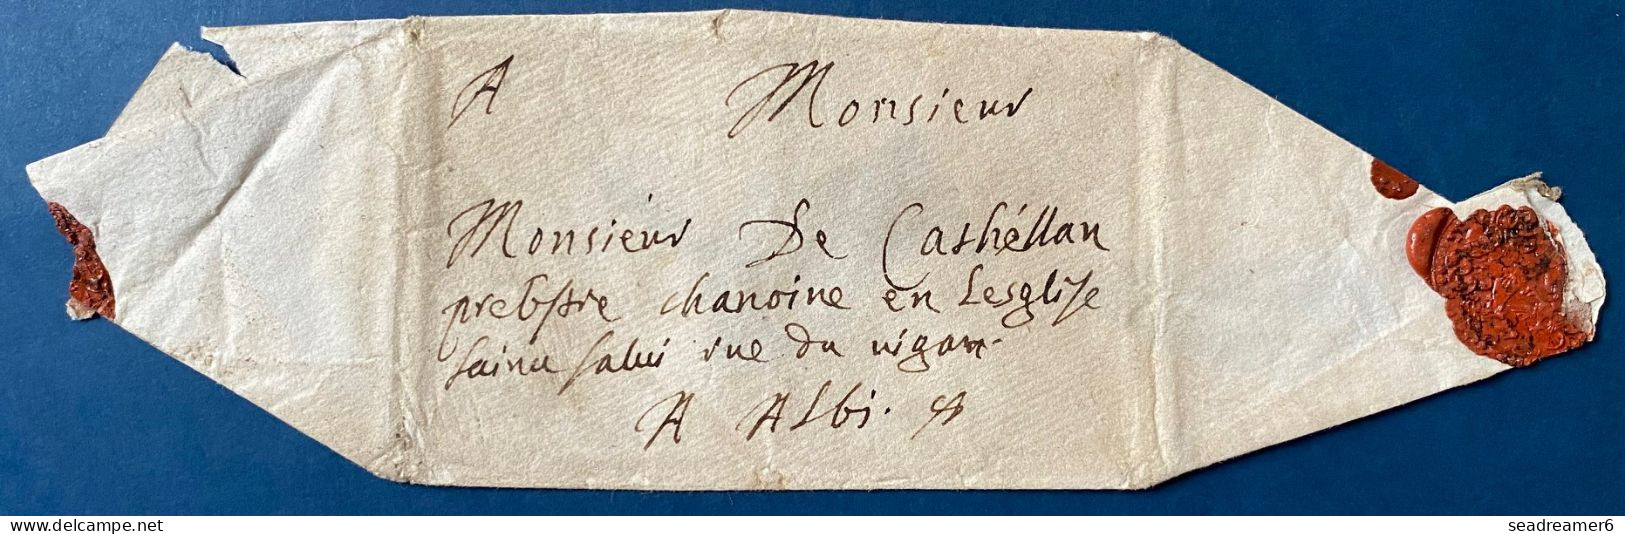 A Monsieur
Monsieur De Casthéllan
prebstre chanoine en Lesglise
sainct salui rue du uigan.
A Albi.
seadreamer6